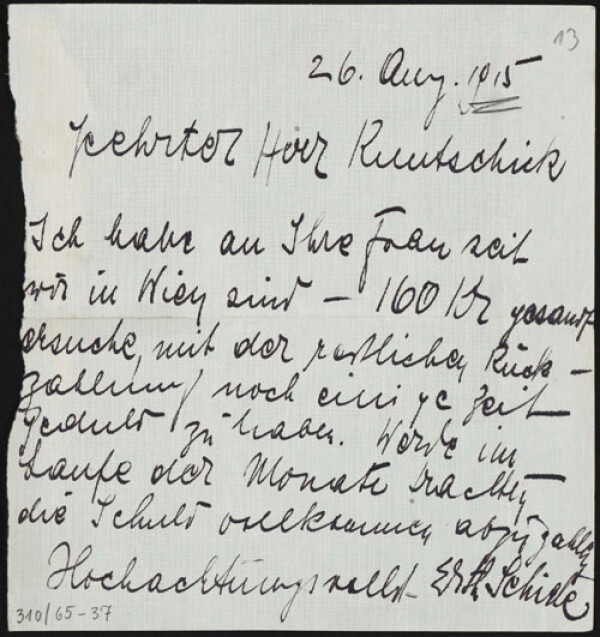 13
26. Aug. 1915
geehrter Herr Kuntschick
Ich habe an Ihre Frau seit
wir in Wien sind – 160 Kr gesandt
ersuche, mit der restlichen Rück-
zahlung noch einige Zeit
Geduld zu haben. Werde im
Laufe der Monate trachten
die Schuld vollkommen abzuzahlen
Hochachtungsvollst Edith Schiele
310/65-37